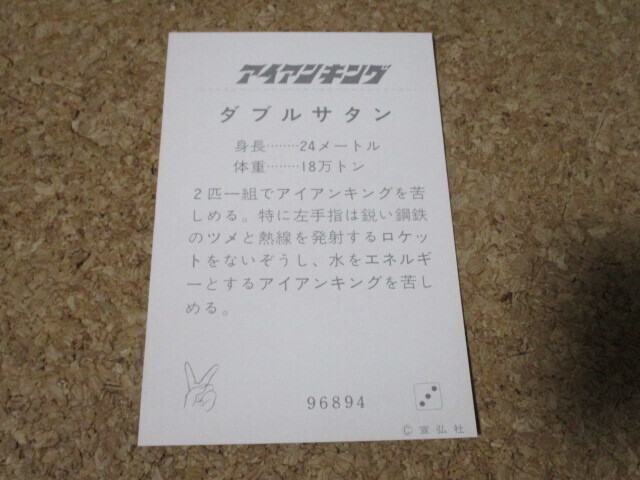 アイアンキング
ダブルサタン
身長………24メートル
体重………18万トン
2匹一組でアイアンキングを苦
しめる。特に左手指は鋭い鋼鉄
のツメと熱線を発射するロケッ
トをないぞうし、水をエネルギ
ーとするアイアンキングを苦し
める。
96894
© 宣弘社